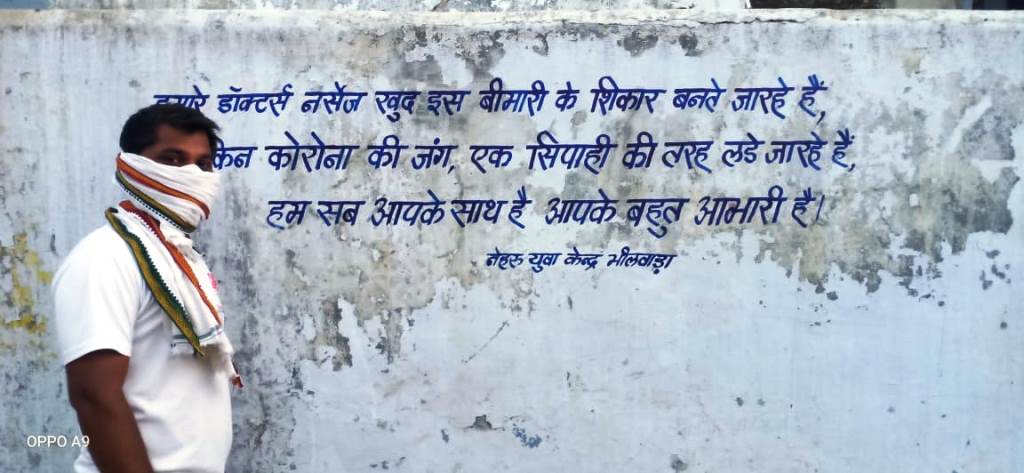 डॉक्टर्स नर्सेज खुद इस बीमारी के शिकार बनते जारहे हैं,
कोरोना की जंग, एक सिपाही की तरह लडे जारहे हैं,
हम सब आपके साथ है आपके बहुत आभारी है।
नेहरु युवा केन्द्र भीलवाड़ा
OPPO A9